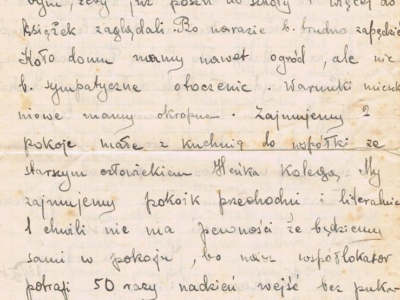 bym, żeby już poszli do szkoły i więcej do
książek zaglądali. Bo narazie b. trudno zapędzić
Koło domu mamy nawet ogród, ale nie
b. sympatyczne otoczenie. Warunki mieszk
niowe mamy okropne. Zajmujemy 2
pokoje małe z kuchnią do współki ze
starszym człowiekiem Heńka Kolegą, My
zajmujemy pokoik przechodni i literalnie
1 chwili nie ma pewności że będziemy
sami w pokoju, bo nasz współlokator
potrafi 50 razy nadzień wejść bez puka-